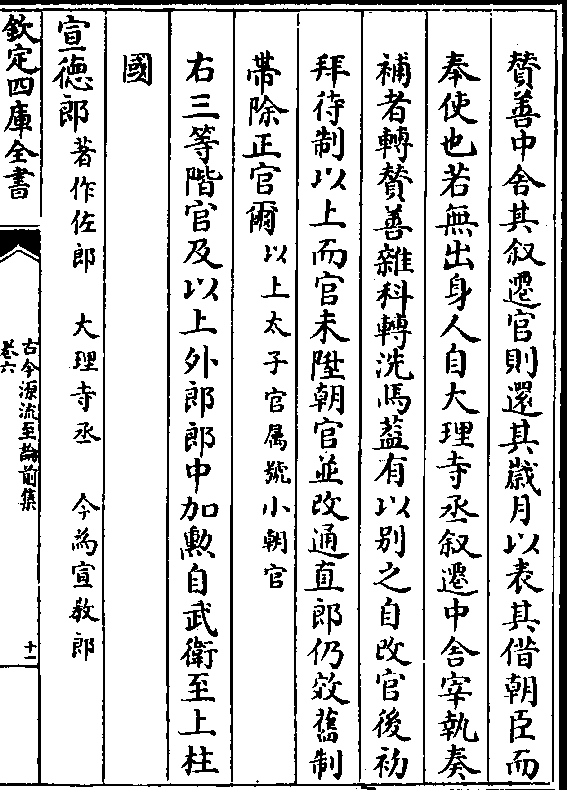 贊善中舍其叙遷官則還其歲月以表其借朝臣而
奉使也若無出身人自大理寺丞叙遷中舍宰執奏
補者轉贊善雜科轉洗馬葢有以别之自改官後初
拜待制以上而官未陞朝官並改通直郎仍效舊制
帶除正官爾以上太子官属號小朝官
右三等階官及以上外郎郎中加勲自武衛至上柱
國
宣德郎著作佐郎 大理寺丞 今為宣教郎
欽定四庫全書
古今源流至論前集
卷六
十一